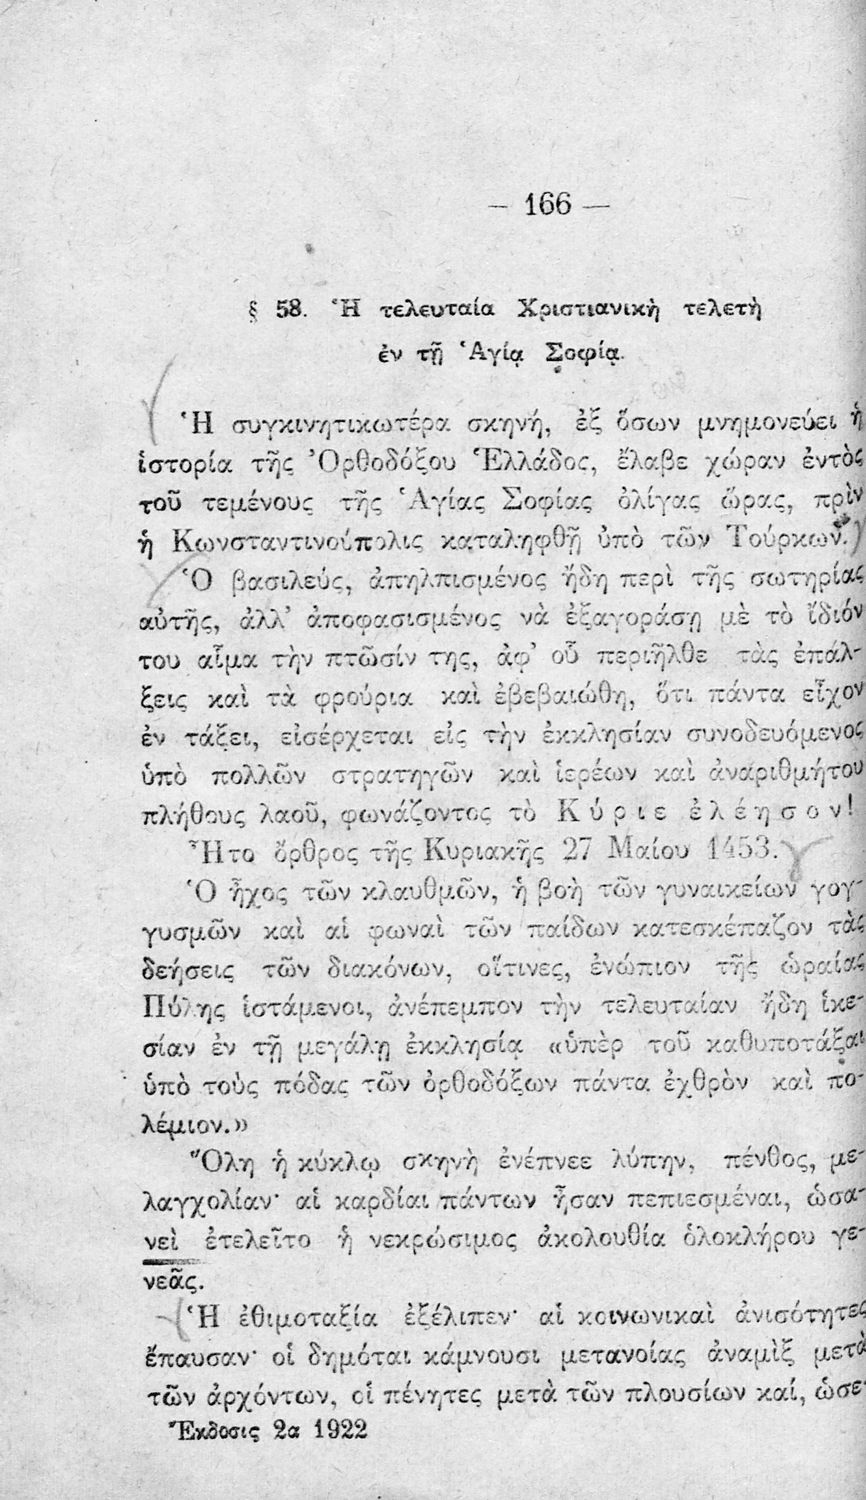 — 166 —
§ 58. Ἡ τελευταία Χριστιανικὴ τελετὴ
ἐν τῇ Ἁγίᾳ Σοφίᾳ.
Ἡ συγκινητικωτέρα σκηνή, ἐξ ὅσων μνημονεύει ἡ
ἱστορία τῆς Ὀρθοδόξου Ἑλλάδος, ἔλαβε χώραν ἐντὸς
τοῦ τεμένους τῆς Ἁγίας Σοφίας ὀλίγας ὥρας, πρὶν
ἡ Κωνσταντινούπολις καταληφθῇ ὑπὸ τῶν Τούρκων.
Ὁ βασιλεύς, ἀπηλπισμένος ἤδη περὶ τῆς σωτηρίας
αὐτῆς, ἀλλ’ ἀποφασισμένος νὰ ἐξαγοράσῃ μὲ τὸ ἴδιόν
του αἷμα τὴν πτῶσίν της, ἀφ’ οὗ περιῆλθε τὰς ἐπάλ-
ξεις καὶ τὰ φρούρια καὶ ἐβεβαιώθη, ὅτι πάντα εἶχον
ἐν τάξει, εἰσέρχεται εἰς τὴν ἐκκλησίαν συνοδευόμενος
ὑπὸ πολλῶν στρατηγῶν καὶ ἱερέων καὶ ἀναριθμήτου
πλήθους λαοῦ, φωνάζοντος τὸ Κύριε ἐλέησον!
Ἦτο ὄρθρος τῆς Κυριακῆς 27 Μαίου 1453.
Ὁ ἦχος τῶν κλαυθμῶν, ἡ βοὴ τῶν γυναικείων γογ-
γυσμῶν καὶ αἱ φωναὶ τῶν παίδων κατεσκέπαζον τὰς
δεήσεις τῶν διακόνων, οἵτινες, ἐνώπιον τῆς ὡραίας
Πύλης ἱστάμενοι, ἀνέπεμπον τὴν τελευταίαν ἤδη ἱκε-
σίαν ἐν τῇ μεγάλῃ ἐκκλησίᾳ «ὑπὲρ τοῦ καθυποτάξαι
ὑπὸ τοὺς πόδας τῶν ὀρθοδόξων πάντα ἐχθρὸν καὶ πο-
λέμιον.»
Ὅλη ἡ κύκλῳ σκηνὴ ἐνέπνεε λύπην, πένθος, με-
λαγχολίαν· αἱ καρδίαι πάντων ἦσαν πεπιεσμέναι, ὡσα-
νεὶ ἐτελεῖτο ἡ νεκρώσιμος ἀκολουθία ὁλοκλήρου γε-
νεᾶς.
Ἡ ἐθιμοταξία ἐξέλιπεν· αἱ κοινωνικαὶ ἀνισότητες
ἔπαυσαν· οἱ δημόται κάμνουσι μετανοίας ἀναμὶξ μετὰ
τῶν ἀρχόντων, οἱ πένητες μετὰ τῶν πλουσίων καί, ὡσε-
Ἔκδοσις 2α 1922